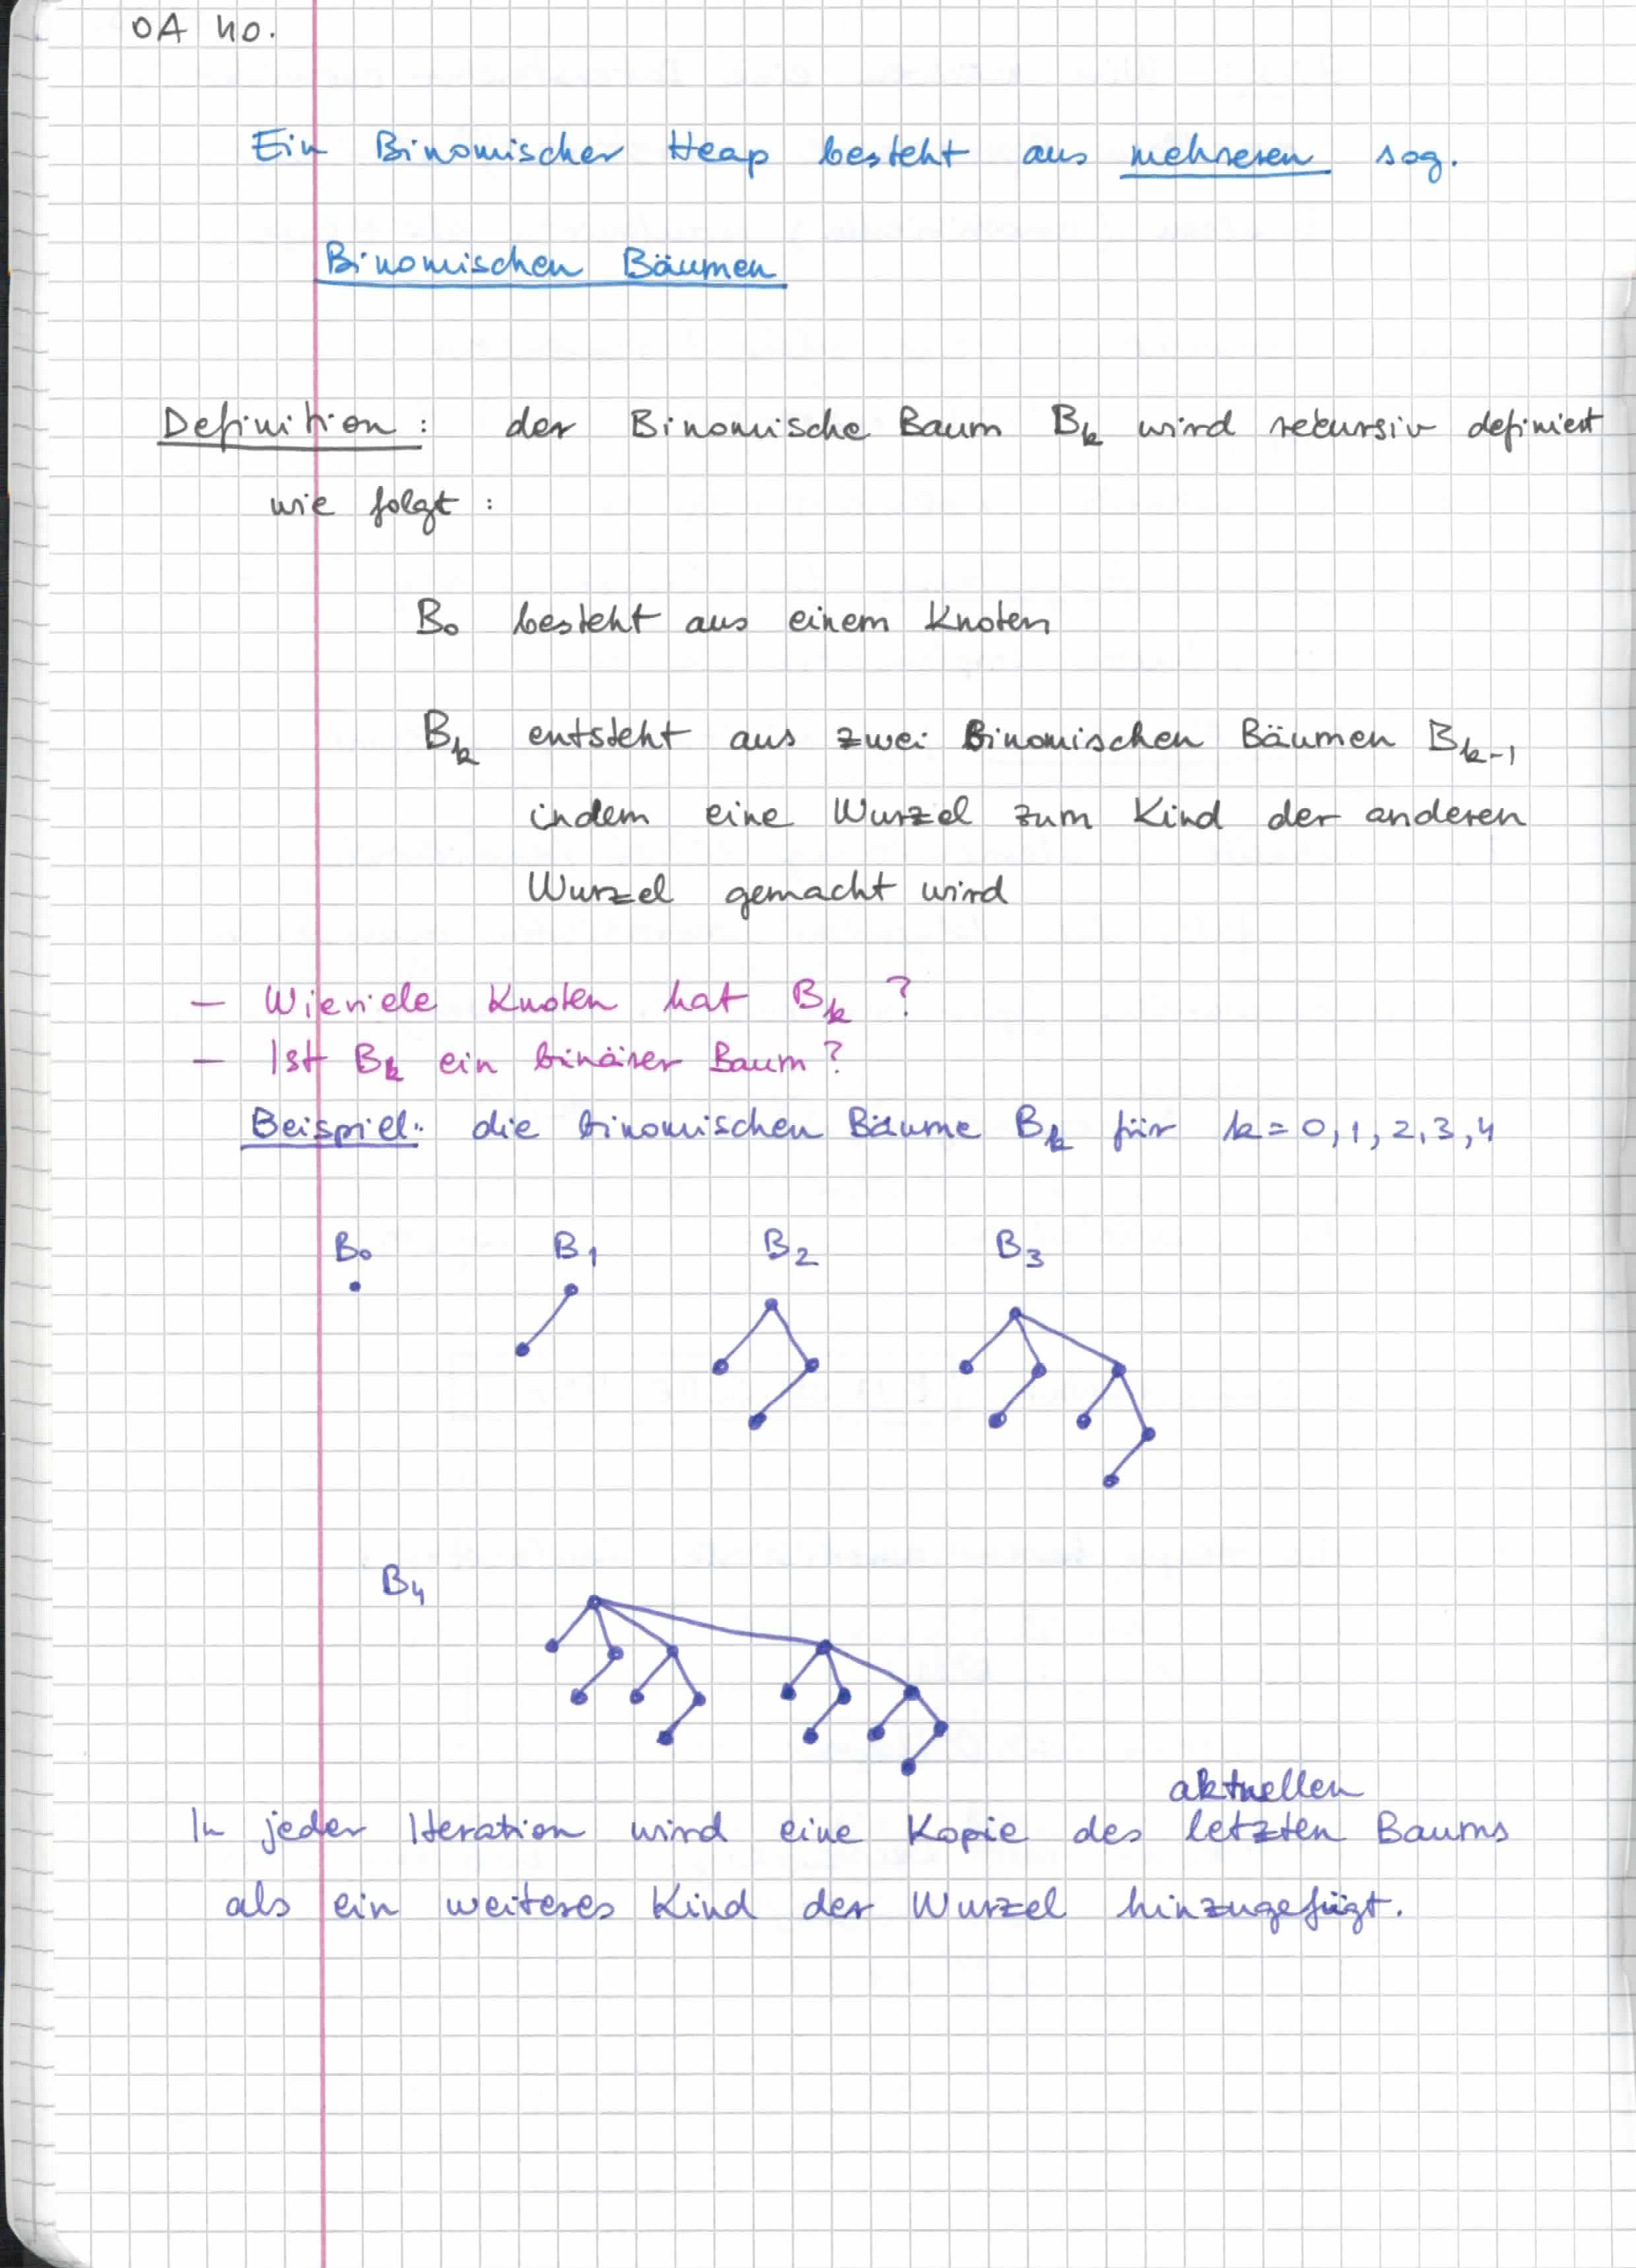 OA 40.
Ein Binomischer Heap besteht aus mehreren sog.
Binomischen Bäumen
Definition: der Binomische Baum Bk wird rekursiv definiert
wie folgt:
B0 besteht aus einem Knoten
Bk entsteht aus zwei Binomischen Bäumen Bk-1
indem eine Wurzel zum Kind der anderen
Wurzel gemacht wird
– Wieviele Knoten hat Bk ?
– Ist Bk ein binärer Baum?
Beispiel: die binomischen Bäume Bk für k=0,1,2,3,4
B0 B1 B2 B3
B4
aktuellen
In jeder Iteration wird eine Kopie des letzten Baums
als ein weiteres Kind der Wurzel hinzugefügt.